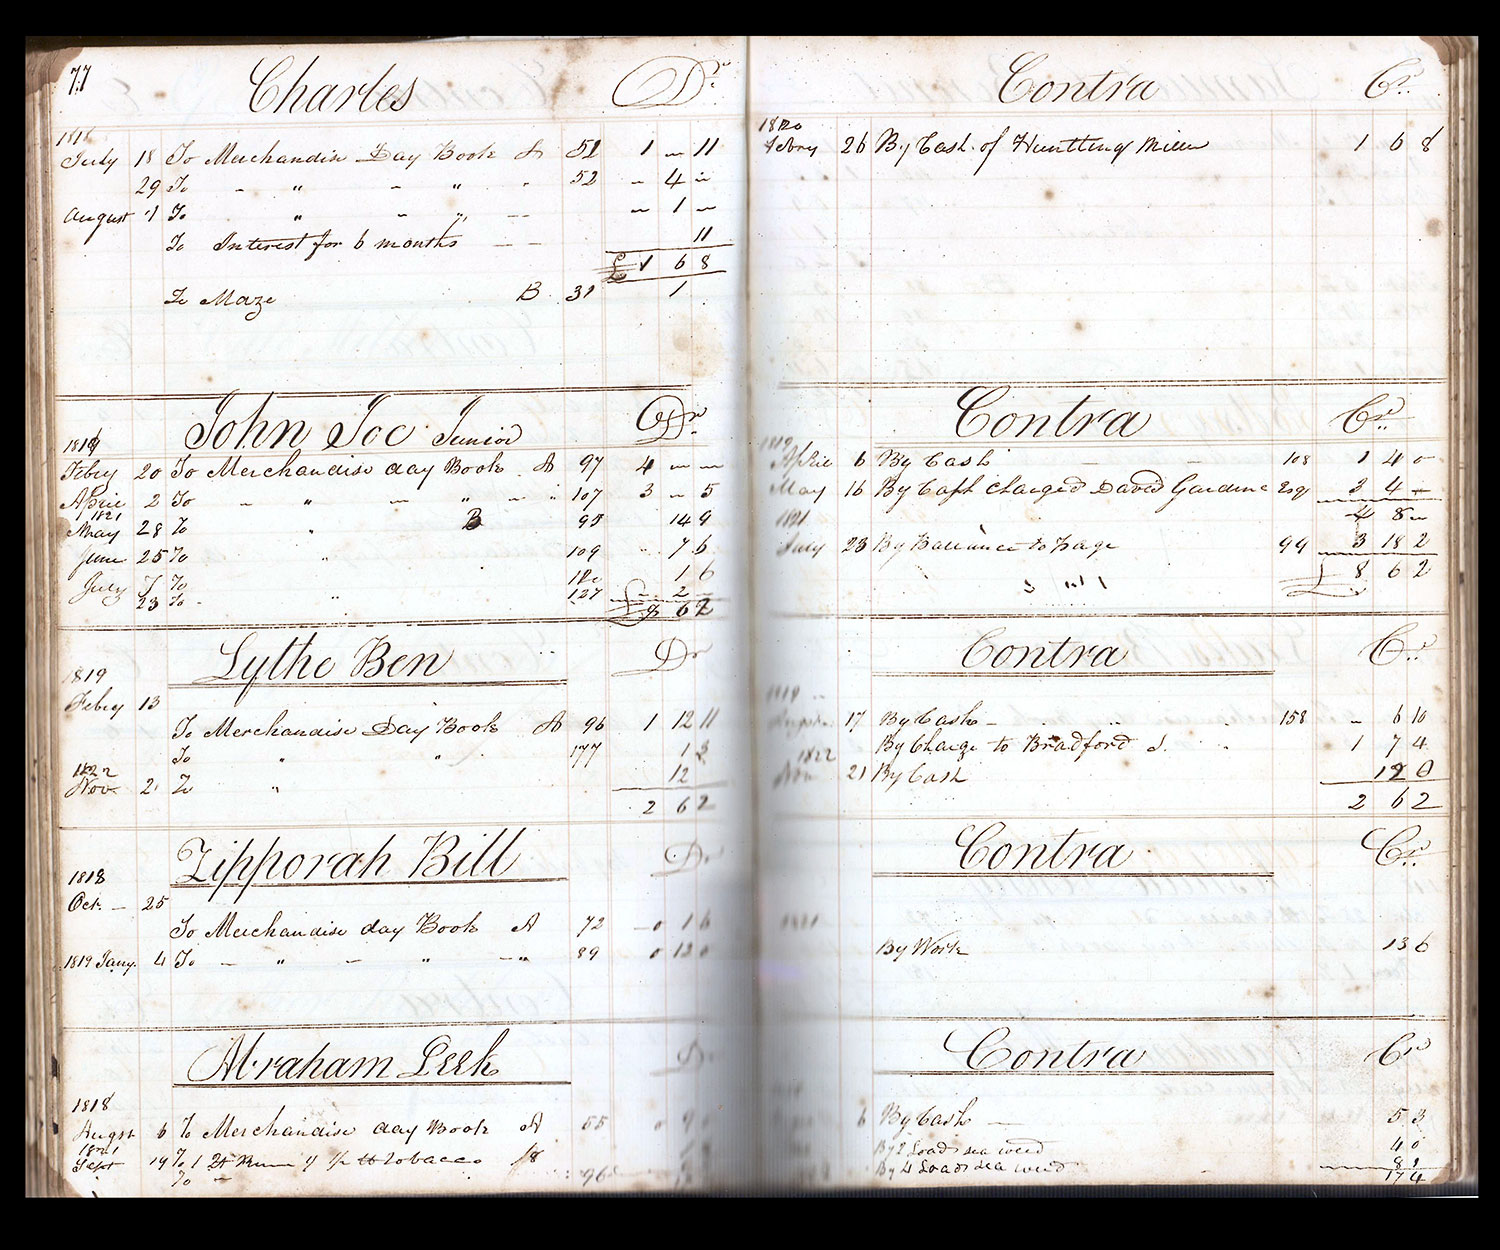 77
Charles Dr.
1818
July 18 To Merchandise Day Book A 51 1 — 11
29 To - " - " - 52 - 4 "
August 1 To " - " -- — 1 —
To Interest for 6 months -- 11
£ 1 6 8
To Maze B 31 1
John Joe Junior Dr.
1819
Febry 20 To Merchandise day Book A 97 4 — —
April 2 To - " - " - " 107 3 — 5
1821
May 28 To " B 95 14 9
June 25 To " 109 - 7 6
July 7 To 120 1 6
23 To - " 127 - 2 -
£ 8 6 2
Lythe Ben Dr
1819
Febry 13
To Merchandise Day Book A 96 1 12 11
To " " 177 1 3
1822
Nov. 21 To " 12
2 6 2
Zipporah Bill Dr
1818
Oct. — 25
To Merchandise day Book A 72 - 0 1 6
1819 Jany. 4 To — " — " — " 89 0 12 0
Abraham Peek Dr
1818
Augst 6 To Merchandise day Book A 55 0
1821
Sept 19 To 1 Rum tobacco /8
To " 96
Contra Cr.
1820
Febry 26 By Cash of Huntting Miller 1 6 8
Contra Cr.
1819
April 6 By Cash - - 108 1 4 0
May 16 By Cash Charged David Gardine Esq 3 4 —
1821 4 8 —
July 23 By Ballance to page 99 3 18 2
£ 8 6 2
Contra Cr.
1819
August 17 By Cash — 158 - 6 10
By Charge to Bradford J. 1 7 4
1822
Nov 21 By Cash 12 0
2 6 2
Contra Cr.
1821
By Work 13 6
Contra Cr
6 By Cash — 5 3
By 2 Loads sea weed 4 0
By 4 Loads sea weed 8 1
17 4